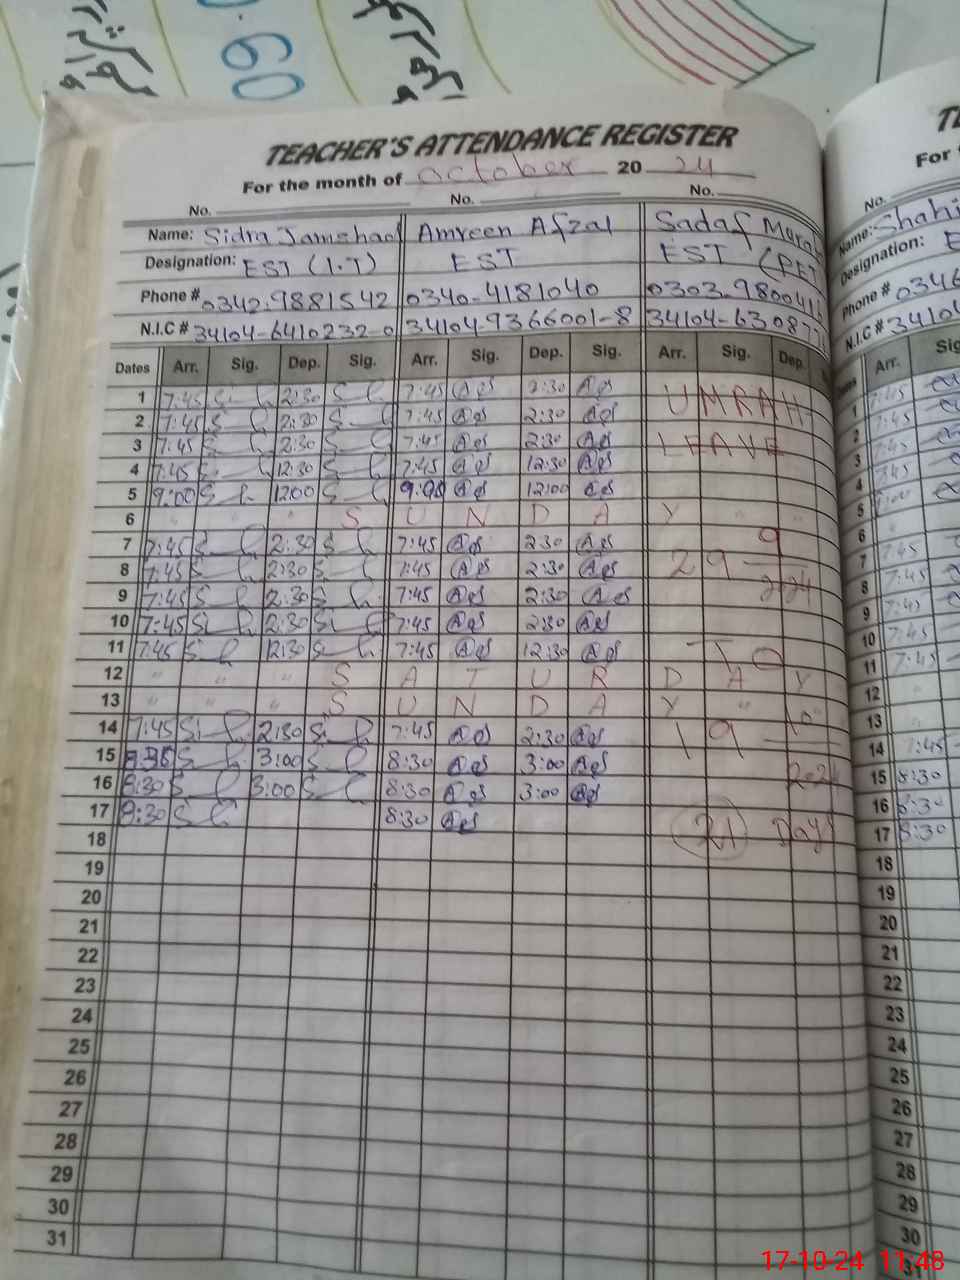 60
TEACHER'S ATTENDANCE REGISTER
For the month of October 20 24
No. No. No.
Name: Sidra Jamshad Amreen Afzal Sadaf
Designation: EST (I.T) EST EST
Phone # 0342-9881542 0340-4181040 0303-9800416
N.I.C # 34104-6410232-0 34104-9366001-8 34104-630877
Dates Arr. Sig. Dep. Sig. Arr. Sig. Dep. Sig. Arr. Sig. Dep.
1 7:45 2:30 7:45 2:30 UMRAH
2 7:45 2:30 7:45 2:30
3 7:45 2:30 7:45 2:30 LEAVE
4 7:45 12:30 7:45 12:30
5 9:00 12:00 9:00 12:00
6 SUNDAY
7 7:45 2:30 7:45 2:30 9
8 7:45 2:30 7:45 2:30 29 2024
9 7:45 2:30 7:45 2:30
10 7:45 2:30 7:45 2:30
11 7:45 12:30 7:45 12:30 TO
12 SATURDAY
13 SUNDAY
14 7:45 2:30 7:45 2:30 19 10
15 8:30 3:00 8:30 3:00 2024
16 8:30 3:00 8:30 3:00
17 8:30 8:30 21 Days
18
19
20
21
22
23
24
25
26
27
28
29
30
31
No.
Name: Shahi
Designation: E
Phone # 0346
N.I.C # 34104
Arr. Sig
1 7:45
2 7:45
3 7:45
4 7:45
5
6
7 7:45
8 7:45
9 7:45
10 7:45
11 7:45
12
13
14 7:45
15 8:30
16 8:30
17 8:30
18
19
20
21
22
23
24
25
26
27
28
29
30
31
17-10-24 11:48